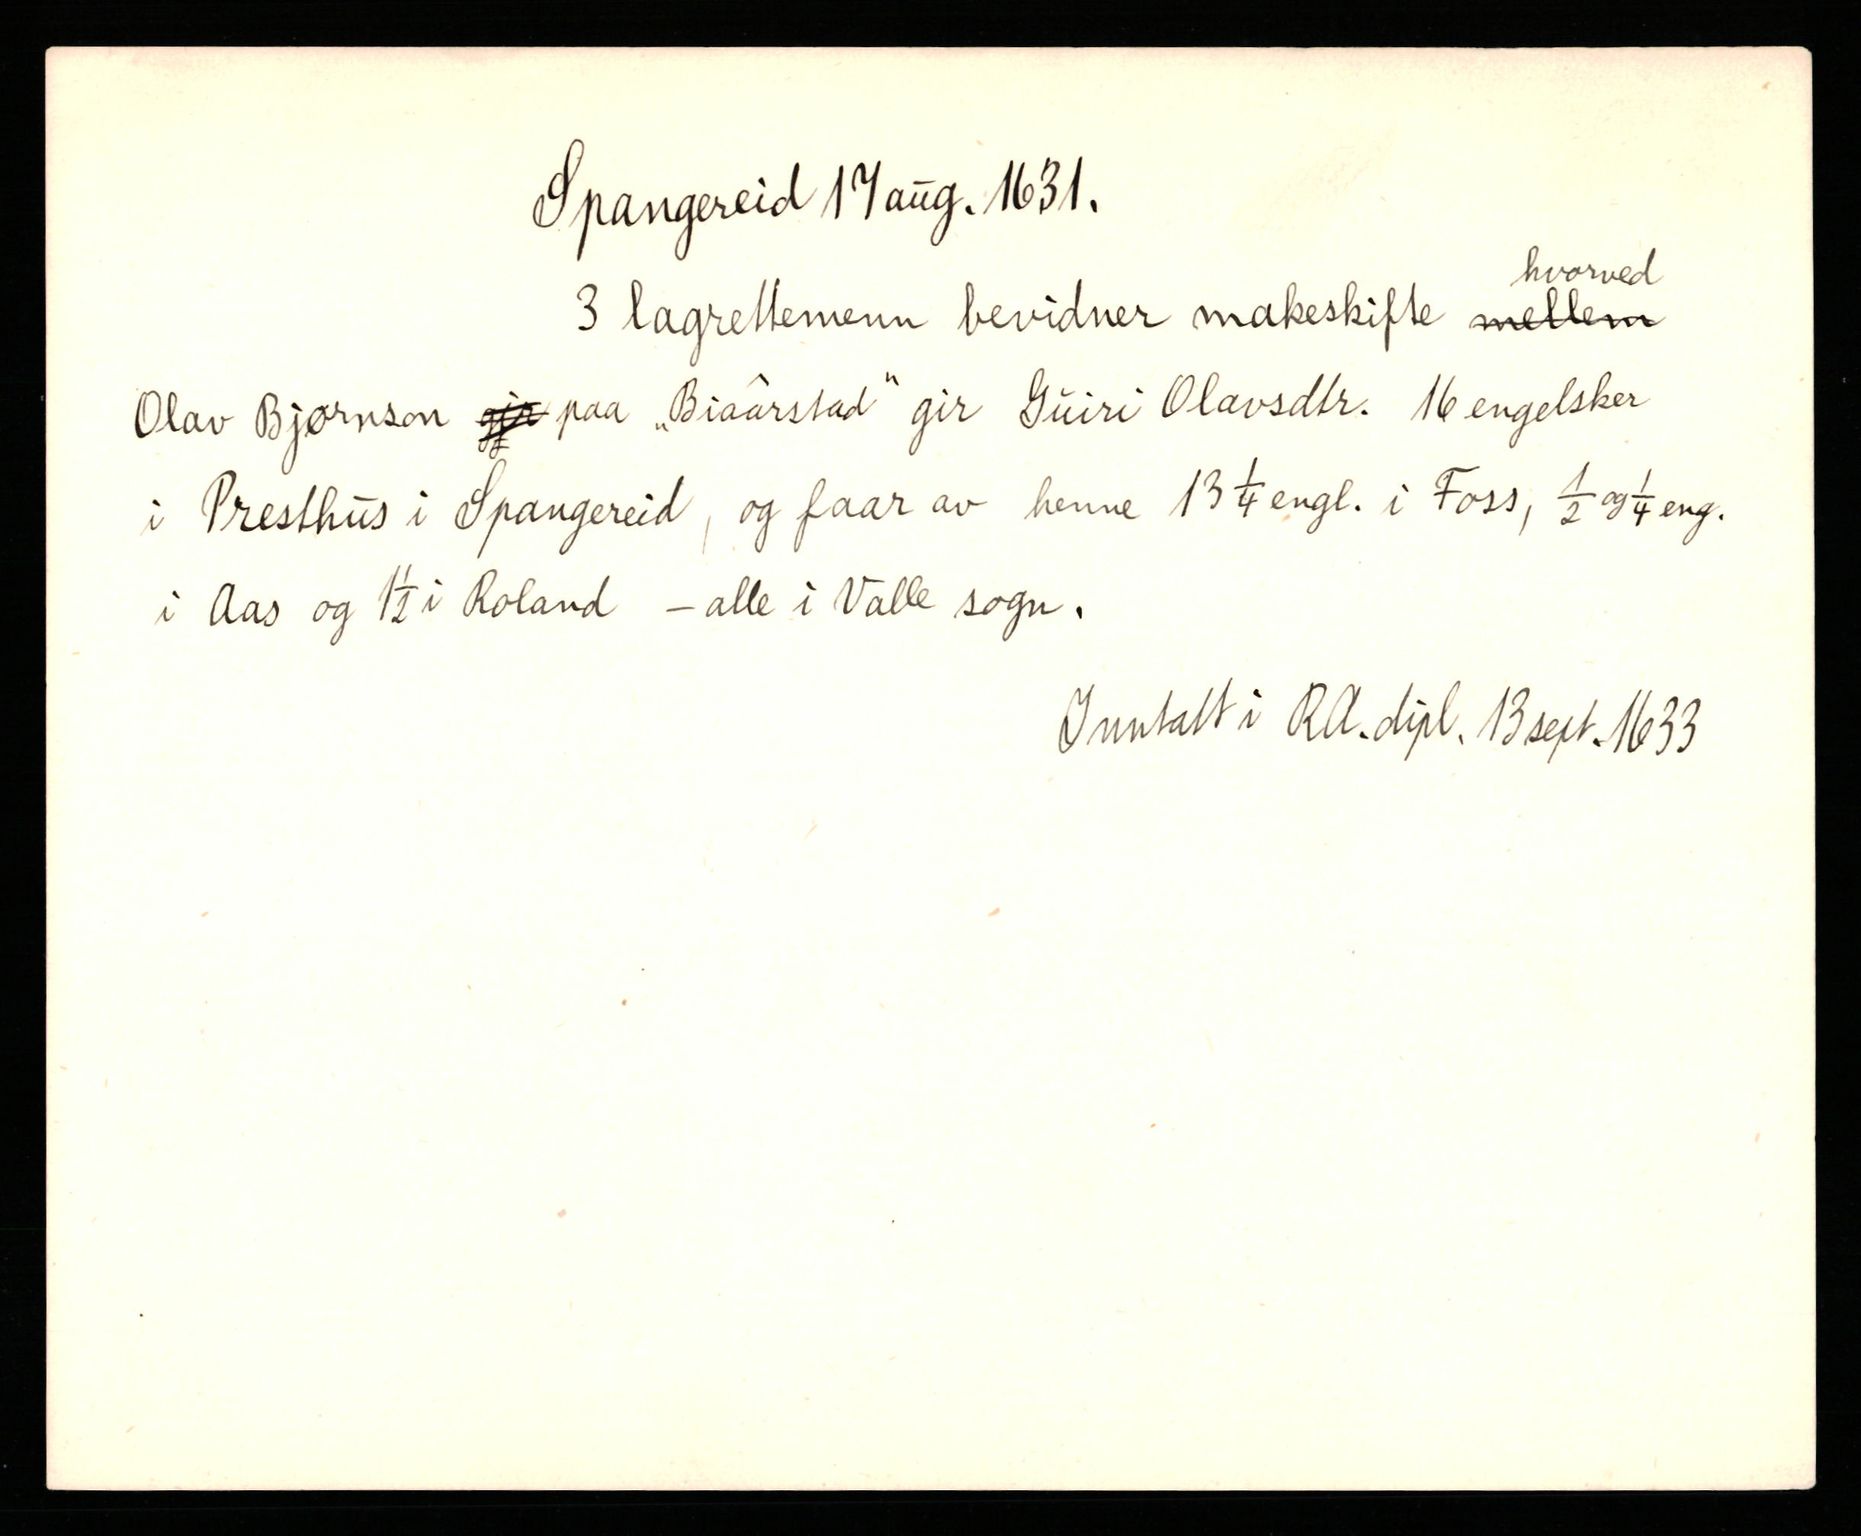 Spangereid 17 aug. 1631.
hvorved
3 lagrettemenn bevidner makeskifte mellem
Olav Bjørnson gir paa „Biaârstad" gir Guiri Olavsdtr. 16 engelsker
i Presthus i Spangereid, og faar av henne 13 1/4 engl. i Foss, 1/2 og 1/4 eng.
i Aas og 1 1/2 i Roland – alle i Valle sogn.
Inntatt i RA. dipl. 13 sept. 1633